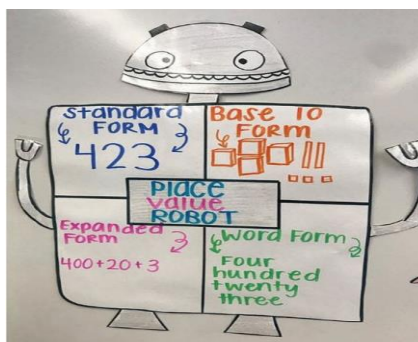 Standard
FORM
423
Base 10
FORM
PLACE
value
ROBOT
Expanded
Form
400+20+3
Word Form
Four
hundred
twenty
three